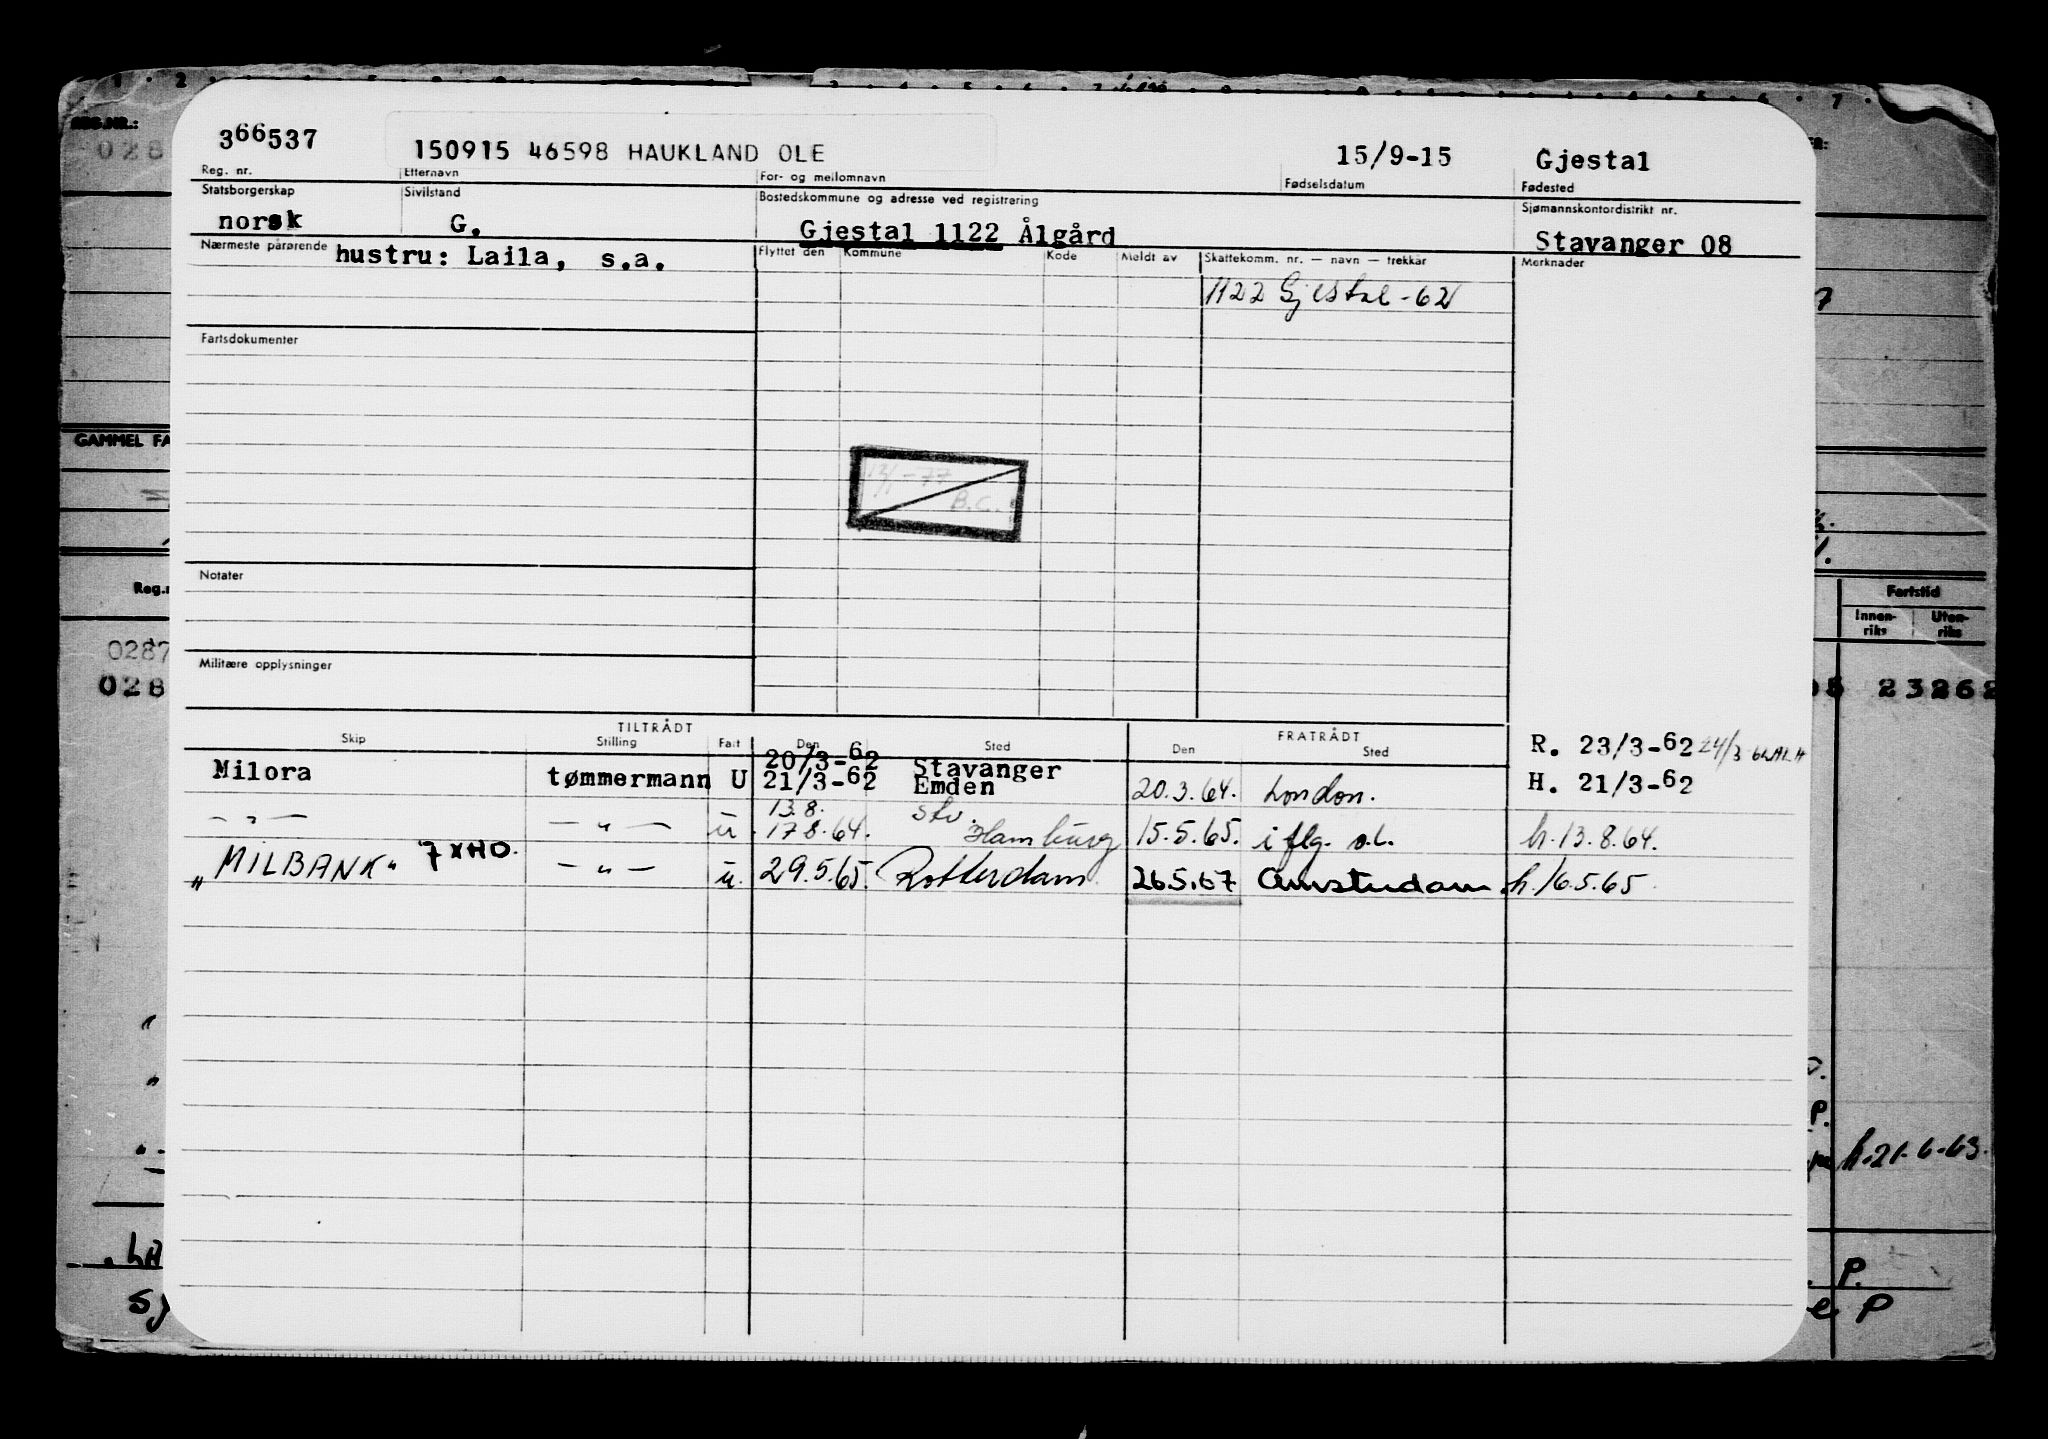 366537
150915 46598 HAUKLAND OLE
15/9-15
Gjestal
Reg. nr.
Etternavn
For- og mellomnavn
Fødselsdatum
Fødested
Statsborgerskap
Sivilstand
Bostedskommune og adresse ved registrering
Sjømannskontordistrikt nr.
norsk
G.
Gjestal 1122 Ålgård
Stavanger 08
Nærmeste pårørende
hustru: Laila, s.a.
Flyttet den
Kommune
Kode
Meldt av
Skattekomm. nr. — navn — trekkår
Merknader
1122 Gjestal -62
Fartsdokumenter
GAMMEL FA
B.C.
Notater
Reg.n
Fartstid
Innen-
riks
Uten-
riks
Militære opplysninger
0287
028
23262
TILTRÅDT
FRATRÅDT
Skip
Stilling
Fart
Den
Sted
Den
Sted
20/3-62 Stavanger
R. 23/3-62
Milora
tømmermann U
21/3-62 Emden
20.3.64. London.
H. 21/3-62
— " —
— " —
u.
13.8. Stv.
17.8.64. Hamburg
15.5.65. i flg. o.l.
h. 13.8.64.
"MILBANK" 7XHO.
— " —
u.
29.5.65. Rotterdam.
26.5.67 Amsterdam
h. 16.5.65.
h. 21-6-63.
P.
P